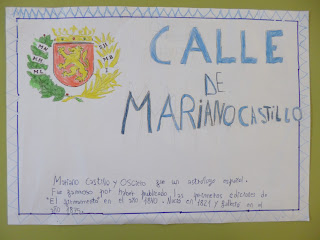 CALLE
DE
MARIANO CASTILLO
MN
MH
ML
SH
MB
I
Mariano Castillo y Oscario que un astrólogo español.
Fue famoso por haber publicado las primeras ediciones de
"El firmamento" en el año 1840. Nació en 1821 y falleció en el
año 1875.